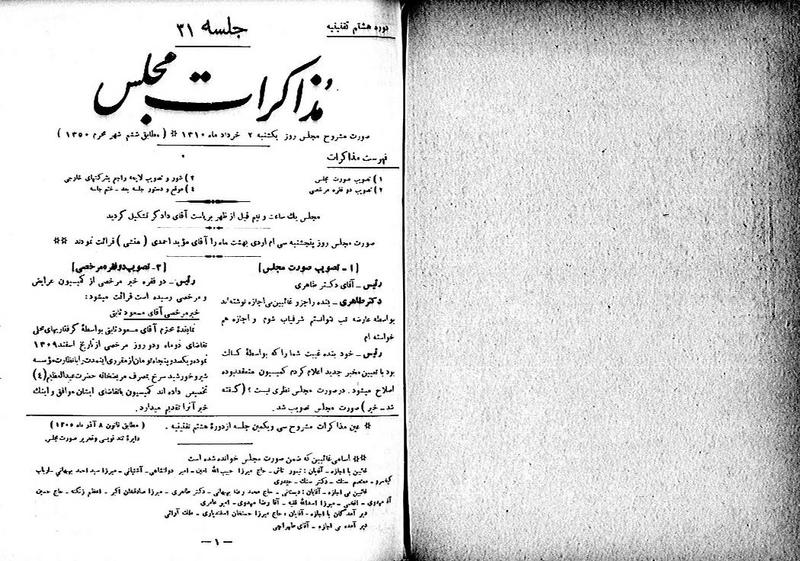 دوره هشتم تقنینیه
جلسه ۳۱
مذاکرات مجلس
صورت مشروح مجلس روز یکشنبه ۲ خرداد ماه ۱۳۱۰ * ( مطابق ششم شهر محرم ۱۳۵۰ )
فهرست مذاکرات
۱) تصویب صورت مجلس
۲) تصویب دو فقره مرخصی
۳) شور و تصویب لایحه راجع بشرکتهای خارجی
۴) موقع و دستور جلسه بعد - ختم جلسه
مجلس یك ساعت و نیم قبل از ظهر بریاست آقای دادگر تشکیل گردید
صورت مجلس روز پنجشنبه سی ام اردی بهشت ماه را آقای مؤید احمدی (منشی) قرائت نمودند **
[۱ - تصویب صورت مجلس]
رئیس - آقای دکتر طاهری
دکتر طاهری - بنده را جزو غائبین بی اجازه نوشته اند
بواسطه عارضه تب نتوانستم شرفیاب شوم و اجازه هم
خواسته ام
رئیس - خود بنده غیبت شما را که بواسطه کسالت
بود با تعیین مخبر جدید اعلام کردم کمیسیون منعقد نبوده
اصلاح میشود. در صورت مجلس نظری نیست؟ (گفته
شد - خیر) صورت مجلس تصویب شد.
[۲ - تصویب دو فقره مرخصی]
رئیس - دو فقره خبر مرخصی از کمیسیون عرایض
و مرخصی رسیده است قرائت میشود:
خبر مرخصی آقای مسعود ثابتی
نماینده محترم آقای مسعود ثابتی بواسطه گرفتاریهای محلی
تقاضای دو ماه و دو روز مرخصی از تاریخ اسفند ۱۳۰۹
نموده و یکصد و پنجاه تومان از مقرری اینمدت را با نظارت مؤسسه
شیر و خورشید سرخ بمصرف مریضخانه حضرت عبدالعظیم (ع)
تخصیص داده اند کمیسیون با تقاضای ایشان موافق و اینك
خبر آنرا تقدیم میدارد.
* عین مذاکرات مشروح سی و یکمین جلسه از دوره هشتم تقنینیه.
( مطابق قانون ۸ آذر ماه ۱۳۰۵ )
دایرهٔ تند نویسی و تحریر صورت مجلس
** اسامی غائبین که ضمن صورت مجلس خوانده شده است
غائبین با اجازه - آقایان: تیمور تاش - حاج میرزا حبیب الله امین - امیر دولتشاهی - آشتیانی - میرزا سید احمد بهبهانی - ارباب
کیخسرو - معتصم سنك - دکتر سنك - حیدری
غائبین بی اجازه - آقایان: دبستانی - حاج محمد رضا بهبهانی - دکتر طاهری - میرزا صادقخان اکبر - اعظم زنگنه - حاج حسین
آقا مهدوی - افخمی - میرزا اسدالله فقیه - آقا رضا مهدوی - امیر عامری
دیر آمدگان با اجازه - آقایان: حاج میرزا حسنخان اسفندیاری - ملك آرائی
دیر آمده بی اجازه - آقای طهرانچی
- ۱ -